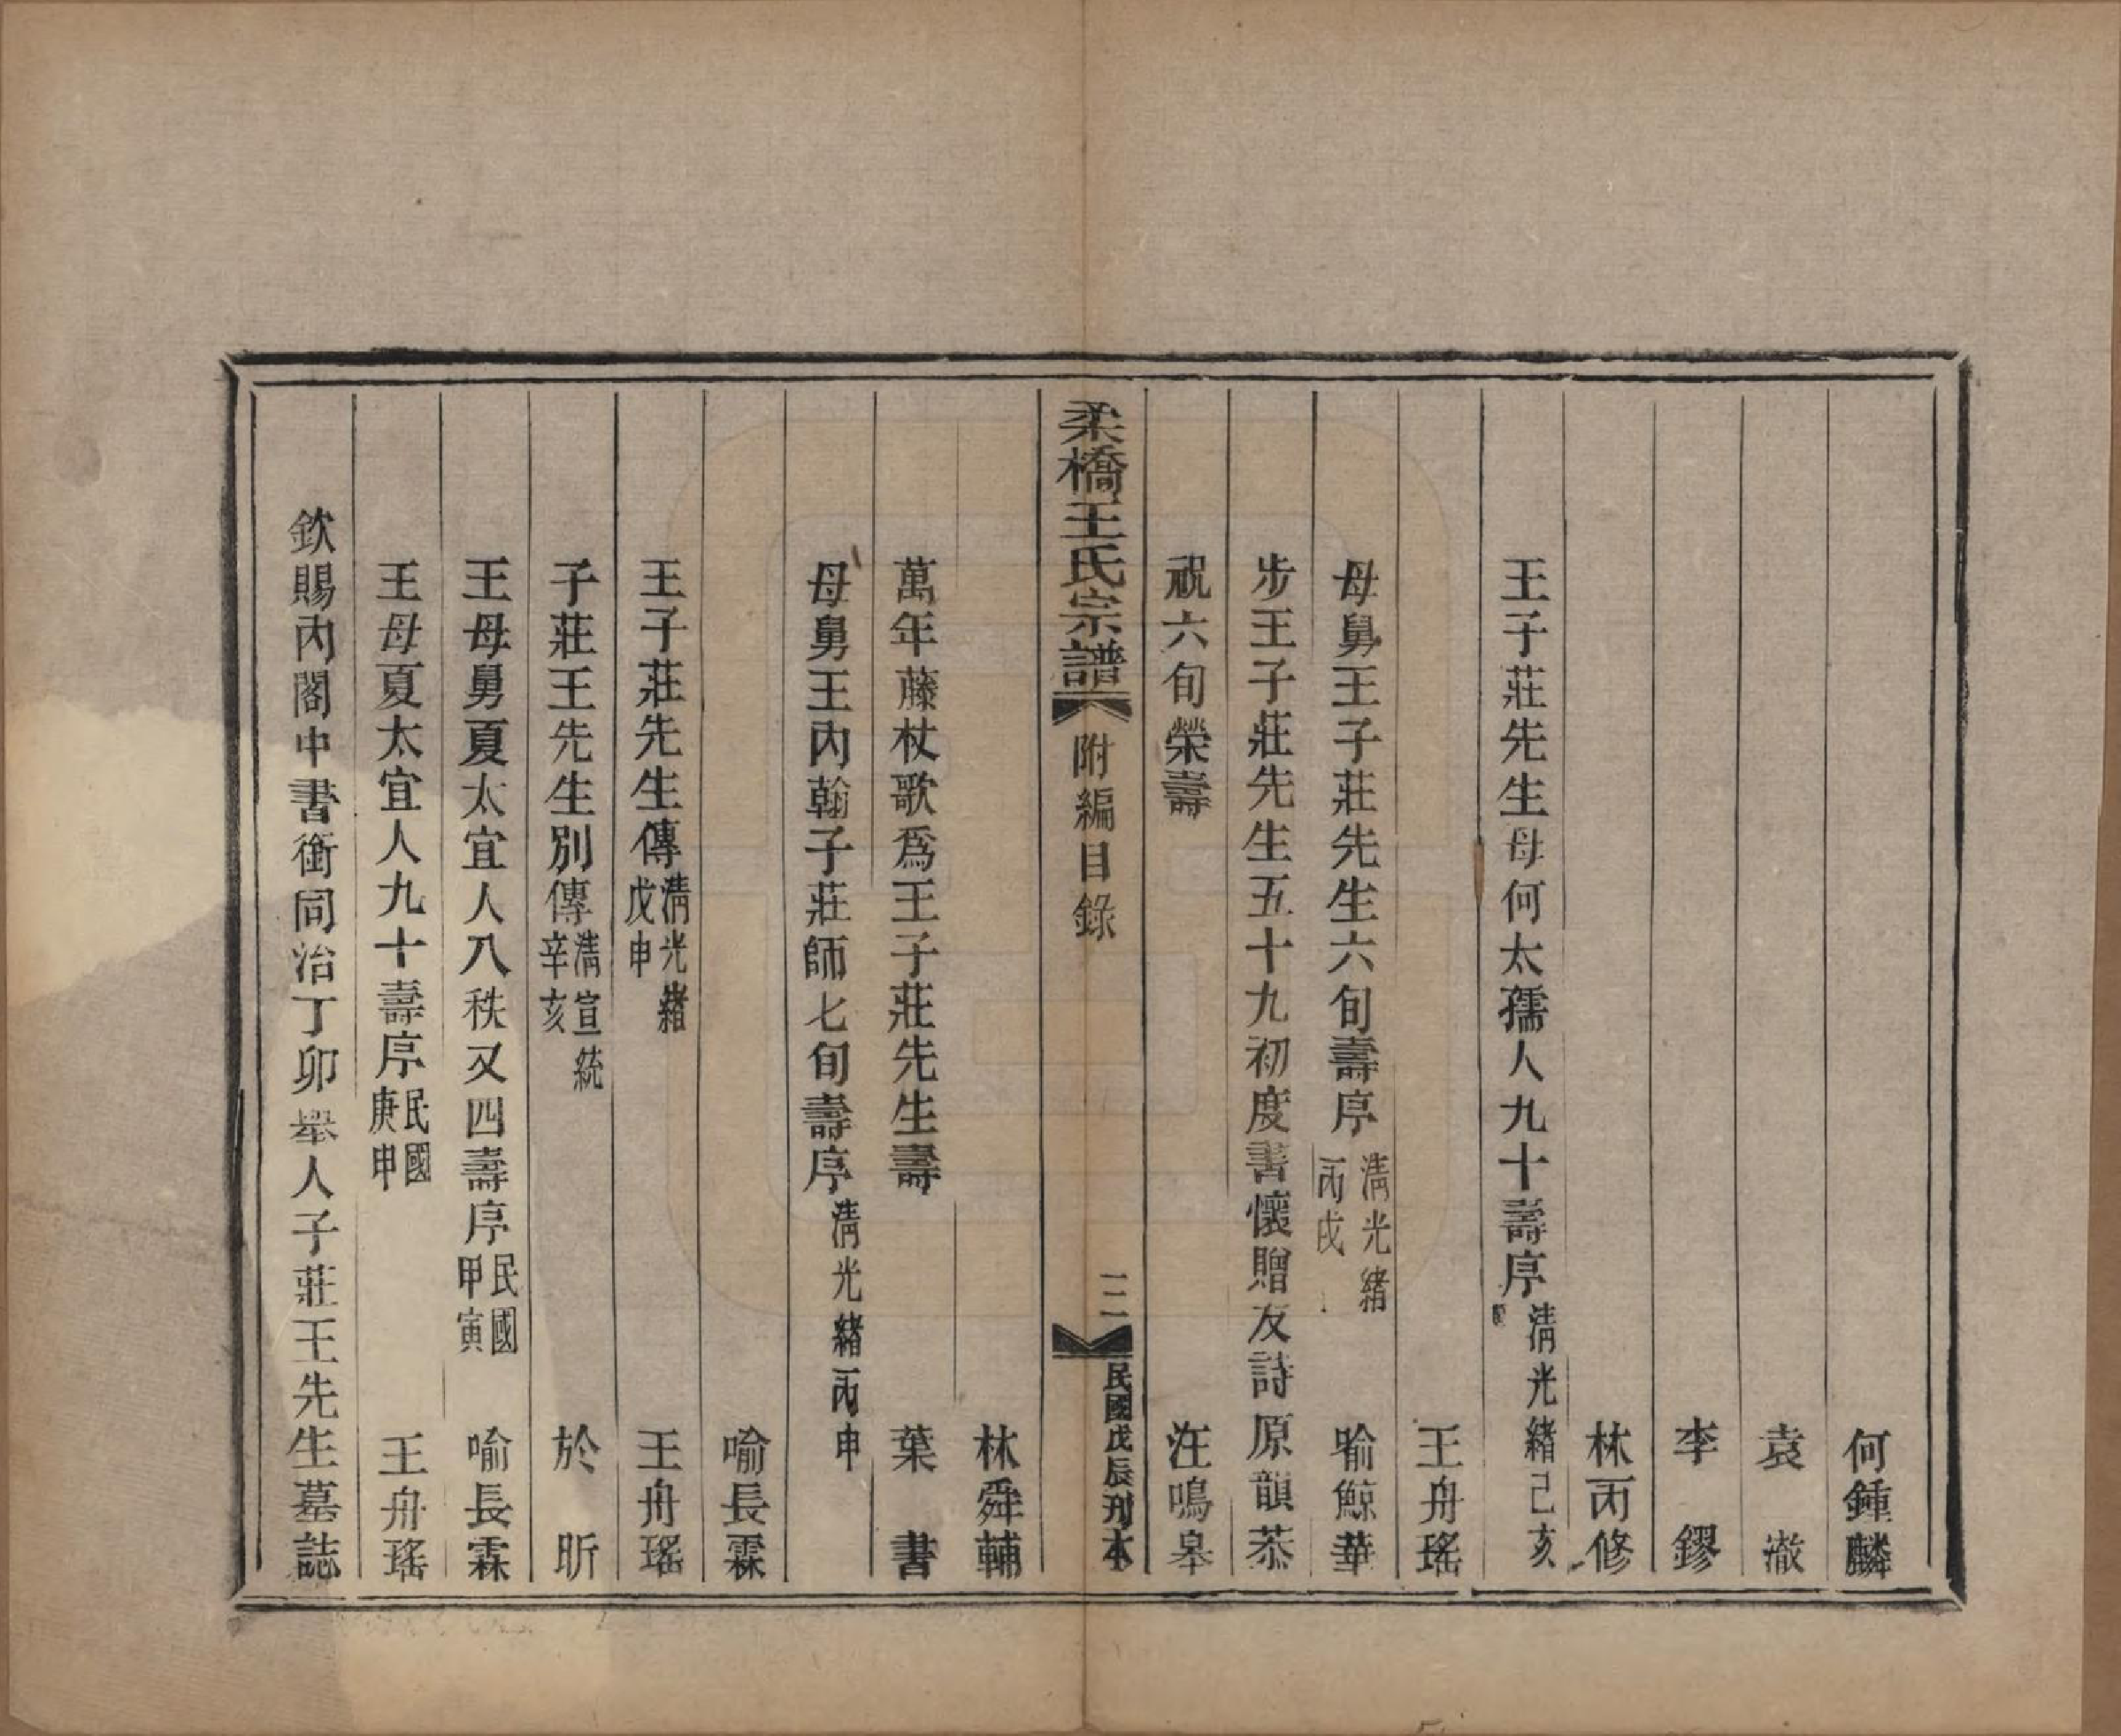 何鍾麟
袁澂
李鏐
林丙修
王子莊先生母何太孺人九十壽序清光緒己亥
王舟瑤
母舅王子莊先生六旬壽序清光緒丙戌 喻鯨華
步王子莊先生五十九初度書懷贈友詩原韻恭
祝六旬榮壽 汪鳴皋
柔橋王氏宗譜 附編目錄 三 民國戊辰刋本
林舜輔
萬年藤杖歌爲王子莊先生壽 葉書
母舅王內翰子莊師七旬壽序清光緒丙申
喻長霖
王子莊先生傳清光緒戊申 王舟瑤
子莊王先生別傳清宣統辛亥 於昕
王母舅夏太宜人八秩又四壽序民國甲寅 喻長霖
王母夏太宜人九十壽序民國庚申 王舟瑤
欽賜內閣中書銜同治丁卯舉人子莊王先生墓誌